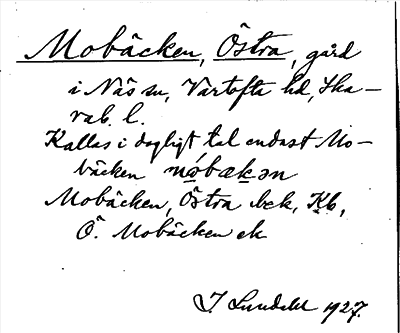 Mobäcken, Östra, gård
i Näs sn, Vartofta hd, Ska-
rab. l.
Kallas i dagligt tal endast Mo-
bäcken
Mobäcken, Östra bek, Kb,
Ö. Mobäcken ek
J Lundahl 1927.